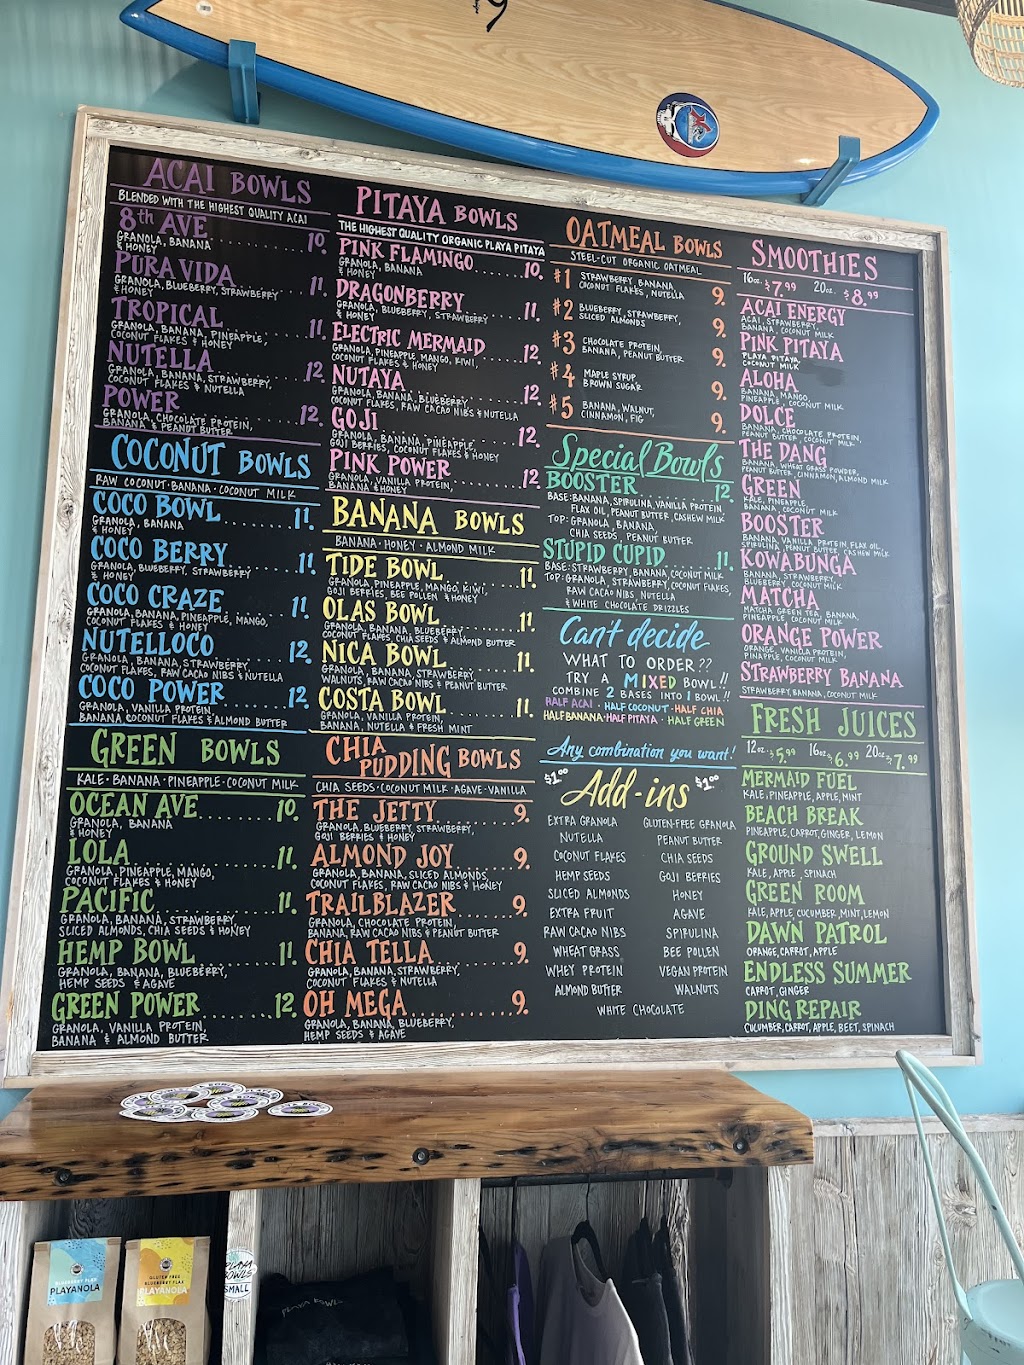 ACAI BOWLS
BLENDED WITH THE HIGHEST QUALITY ACAI
8th AVE 10.
GRANOLA, BANANA
& HONEY
PURA VIDA 11.
GRANOLA, BLUEBERRY, STRAWBERRY
& HONEY
TROPICAL 11.
GRANOLA, BANANA, PINEAPPLE,
COCONUT FLAKES & HONEY
NUTELLA 12.
GRANOLA, BANANA, STRAWBERRY,
COCONUT FLAKES & NUTELLA
POWER 12.
GRANOLA, CHOCOLATE PROTEIN,
BANANA & PEANUT BUTTER
COCONUT BOWLS
RAW COCONUT · BANANA · COCONUT MILK
COCO BOWL 11.
GRANOLA, BANANA
& HONEY
COCO BERRY 11.
GRANOLA, BLUEBERRY, STRAWBERRY
& HONEY
COCO CRAZE 11.
GRANOLA, BANANA, PINEAPPLE, MANGO,
COCONUT FLAKES & HONEY
NUTELLOCO 12.
GRANOLA, BANANA, STRAWBERRY,
COCONUT FLAKES, RAW CACAO NIBS & NUTELLA
COCO POWER 12.
GRANOLA, VANILLA PROTEIN,
BANANA COCONUT FLAKES & ALMOND BUTTER
GREEN BOWLS
KALE · BANANA · PINEAPPLE · COCONUT MILK
OCEAN AVE 10.
GRANOLA, BANANA
& HONEY
LOLA 11.
GRANOLA, PINEAPPLE, MANGO,
COCONUT FLAKES & HONEY
PACIFIC 11.
GRANOLA, BANANA, STRAWBERRY,
SLICED ALMONDS, CHIA SEEDS & HONEY
HEMP BOWL 11.
GRANOLA, BANANA, BLUEBERRY,
HEMP SEEDS & AGAVE
GREEN POWER 12.
GRANOLA, VANILLA PROTEIN,
BANANA & ALMOND BUTTER
PITAYA BOWLS
THE HIGHEST QUALITY ORGANIC PLAYA PITAYA
PINK FLAMINGO 10.
GRANOLA, BANANA
& HONEY
DRAGONBERRY 11.
GRANOLA, BLUEBERRY, STRAWBERRY
& HONEY
ELECTRIC MERMAID 12.
GRANOLA, PINEAPPLE, MANGO, KIWI,
COCONUT FLAKES & HONEY
NUTAYA 12.
GRANOLA, BANANA, BLUEBERRY,
COCONUT FLAKES, RAW CACAO NIBS & NUTELLA
GOJI 12.
GRANOLA, BANANA, PINEAPPLE,
GOJI BERRIES, COCONUT FLAKES & HONEY
PINK POWER 12.
GRANOLA, VANILLA PROTEIN,
BANANA & HONEY
BANANA BOWLS
BANANA · HONEY · ALMOND MILK
TIDE BOWL 11.
GRANOLA, PINEAPPLE, MANGO, KIWI,
GOJI BERRIES, BEE POLLEN & HONEY
OLAS BOWL 11.
GRANOLA, BANANA, BLUEBERRY,
COCONUT FLAKES, CHIA SEEDS & ALMOND BUTTER
NICA BOWL 11.
GRANOLA, BANANA, STRAWBERRY,
WALNUTS, RAW CACAO NIBS & PEANUT BUTTER
COSTA BOWL 11.
GRANOLA, VANILLA PROTEIN,
BANANA, NUTELLA & FRESH MINT
CHIA PUDDING BOWLS
CHIA SEEDS · COCONUT MILK · AGAVE · VANILLA
THE JETTY 9.
GRANOLA, BLUEBERRY, STRAWBERRY,
GOJI BERRIES & HONEY
ALMOND JOY 9.
GRANOLA, BANANA, SLICED ALMONDS,
COCONUT FLAKES, RAW CACAO NIBS & HONEY
TRAILBLAZER 9.
GRANOLA, CHOCOLATE PROTEIN,
BANANA, RAW CACAO NIBS & PEANUT BUTTER
CHIA TELLA 9.
GRANOLA, BANANA, STRAWBERRY,
COCONUT FLAKES & NUTELLA
OH MEGA 9.
GRANOLA, BANANA, BLUEBERRY,
HEMP SEEDS & AGAVE
OATMEAL BOWLS
STEEL-CUT ORGANIC OATMEAL
#1 STRAWBERRY, BANANA,
COCONUT FLAKES, NUTELLA 9.
#2 BLUEBERRY, STRAWBERRY,
SLICED ALMONDS 9.
#3 CHOCOLATE PROTEIN,
BANANA, PEANUT BUTTER 9.
#4 MAPLE SYRUP
BROWN SUGAR 9.
#5 BANANA, WALNUT,
CINNAMON, FIG 9.
Special Bowls
BOOSTER 12.
BASE: BANANA, SPIRULINA, VANILLA PROTEIN,
FLAX OIL, PEANUT BUTTER, CASHEW MILK
TOP: GRANOLA, BANANA,
CHIA SEEDS, PEANUT BUTTER
STUPID CUPID 11.
BASE: STRAWBERRY, BANANA, COCONUT MILK
TOP: GRANOLA, STRAWBERRY, COCONUT FLAKES,
RAW CACAO NIBS, NUTELLA
& WHITE CHOCOLATE DRIZZLES
Can't decide
WHAT TO ORDER??
TRY A MIXED BOWL!!
COMBINE 2 BASES INTO 1 BOWL!!
HALF ACAI · HALF COCONUT · HALF CHIA
HALF BANANA · HALF PITAYA · HALF GREEN
Any combination you want!
$1.00 Add-ins $1.00
EXTRA GRANOLA GLUTEN-FREE GRANOLA
NUTELLA PEANUT BUTTER
COCONUT FLAKES CHIA SEEDS
HEMP SEEDS GOJI BERRIES
SLICED ALMONDS HONEY
EXTRA FRUIT AGAVE
RAW CACAO NIBS SPIRULINA
WHEAT GRASS BEE POLLEN
WHEY PROTEIN VEGAN PROTEIN
ALMOND BUTTER WALNUTS
WHITE CHOCOLATE
SMOOTHIES
16oz. $7.99 20oz. $8.99
ACAI ENERGY
ACAI, STRAWBERRY,
BANANA, COCONUT MILK
PINK PITAYA
PLAYA PITAYA,
COCONUT MILK
ALOHA
BANANA, MANGO,
PINEAPPLE, COCONUT MILK
DOLCE
BANANA, CHOCOLATE PROTEIN,
PEANUT BUTTER, COCONUT MILK
THE DANG
BANANA, WHEAT GRASS POWDER,
PEANUT BUTTER, CINNAMON, ALMOND MILK
GREEN
KALE, PINEAPPLE,
BANANA, COCONUT MILK
BOOSTER
BANANA, VANILLA PROTEIN, FLAX OIL,
SPIRULINA, PEANUT BUTTER, CASHEW MILK
KOWABUNGA
BANANA, STRAWBERRY,
BLUEBERRY, COCONUT MILK
MATCHA
MATCHA GREEN TEA, BANANA,
PINEAPPLE, COCONUT MILK
ORANGE POWER
ORANGE, VANILLA PROTEIN,
PINAPPLE, COCONUT MILK
STRAWBERRY BANANA
STRAWBERRY, BANANA, COCONUT MILK
FRESH JUICES
12oz. $5.99 16oz. $6.99 20oz. $7.99
MERMAID FUEL
KALE, PINEAPPLE, APPLE, MINT
BEACH BREAK
PINEAPPLE, CARROT, GINGER, LEMON
GROUND SWELL
KALE, APPLE, SPINACH
GREEN ROOM
KALE, APPLE, CUCUMBER, MINT, LEMON
DAWN PATROL
ORANGE, CARROT, APPLE
ENDLESS SUMMER
CARROT, GINGER
DING REPAIR
CUCUMBER, CARROT, APPLE, BEET, SPINACH
BLUEBERRY FLAX
PLAYANOLA
GLUTEN FREE
BLUEBERRY FLAX
PLAYANOLA
PLAYA
BOWLS
SMALL
PLAYA BOWLS